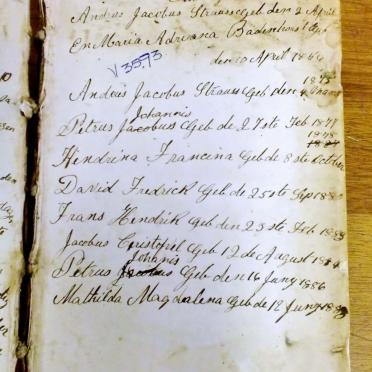 Andries Jacobus Strauss geb den 2 April
En Maria Adriana Badenhorst
den 10 April 1864
V3573
1875
Andries Jacobus Strauss Geb den 4
Johannis
Petrus Jacobus Geb de 27ste Feb 1877
1878
Hendrina Francina Geb de 8ste October
David Fredrick Geb de 25ste Sep
Frans Hendrik Geb den 23ste Feb
Jacobus Cristoffel Geb 12 de August
Johanis
Petrus Geb den 16 Juny 1886
Mathilda Magdalena Geb de 12 Juny